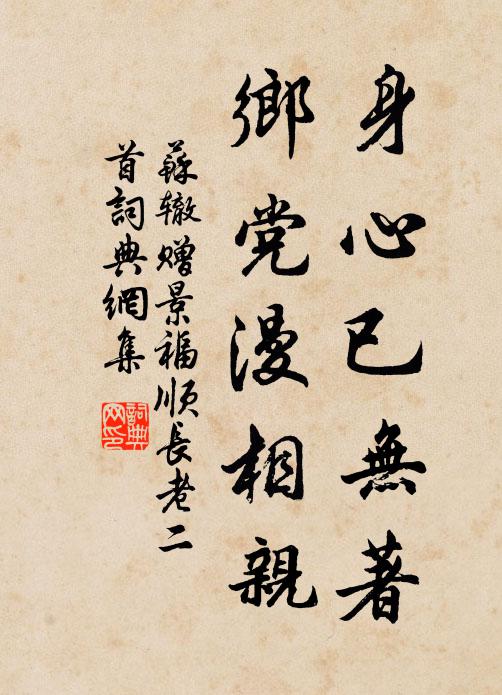 身心已無著
鄉党漫相親
蘇辙赠景福順長老二
首詞典網集
詞典网印